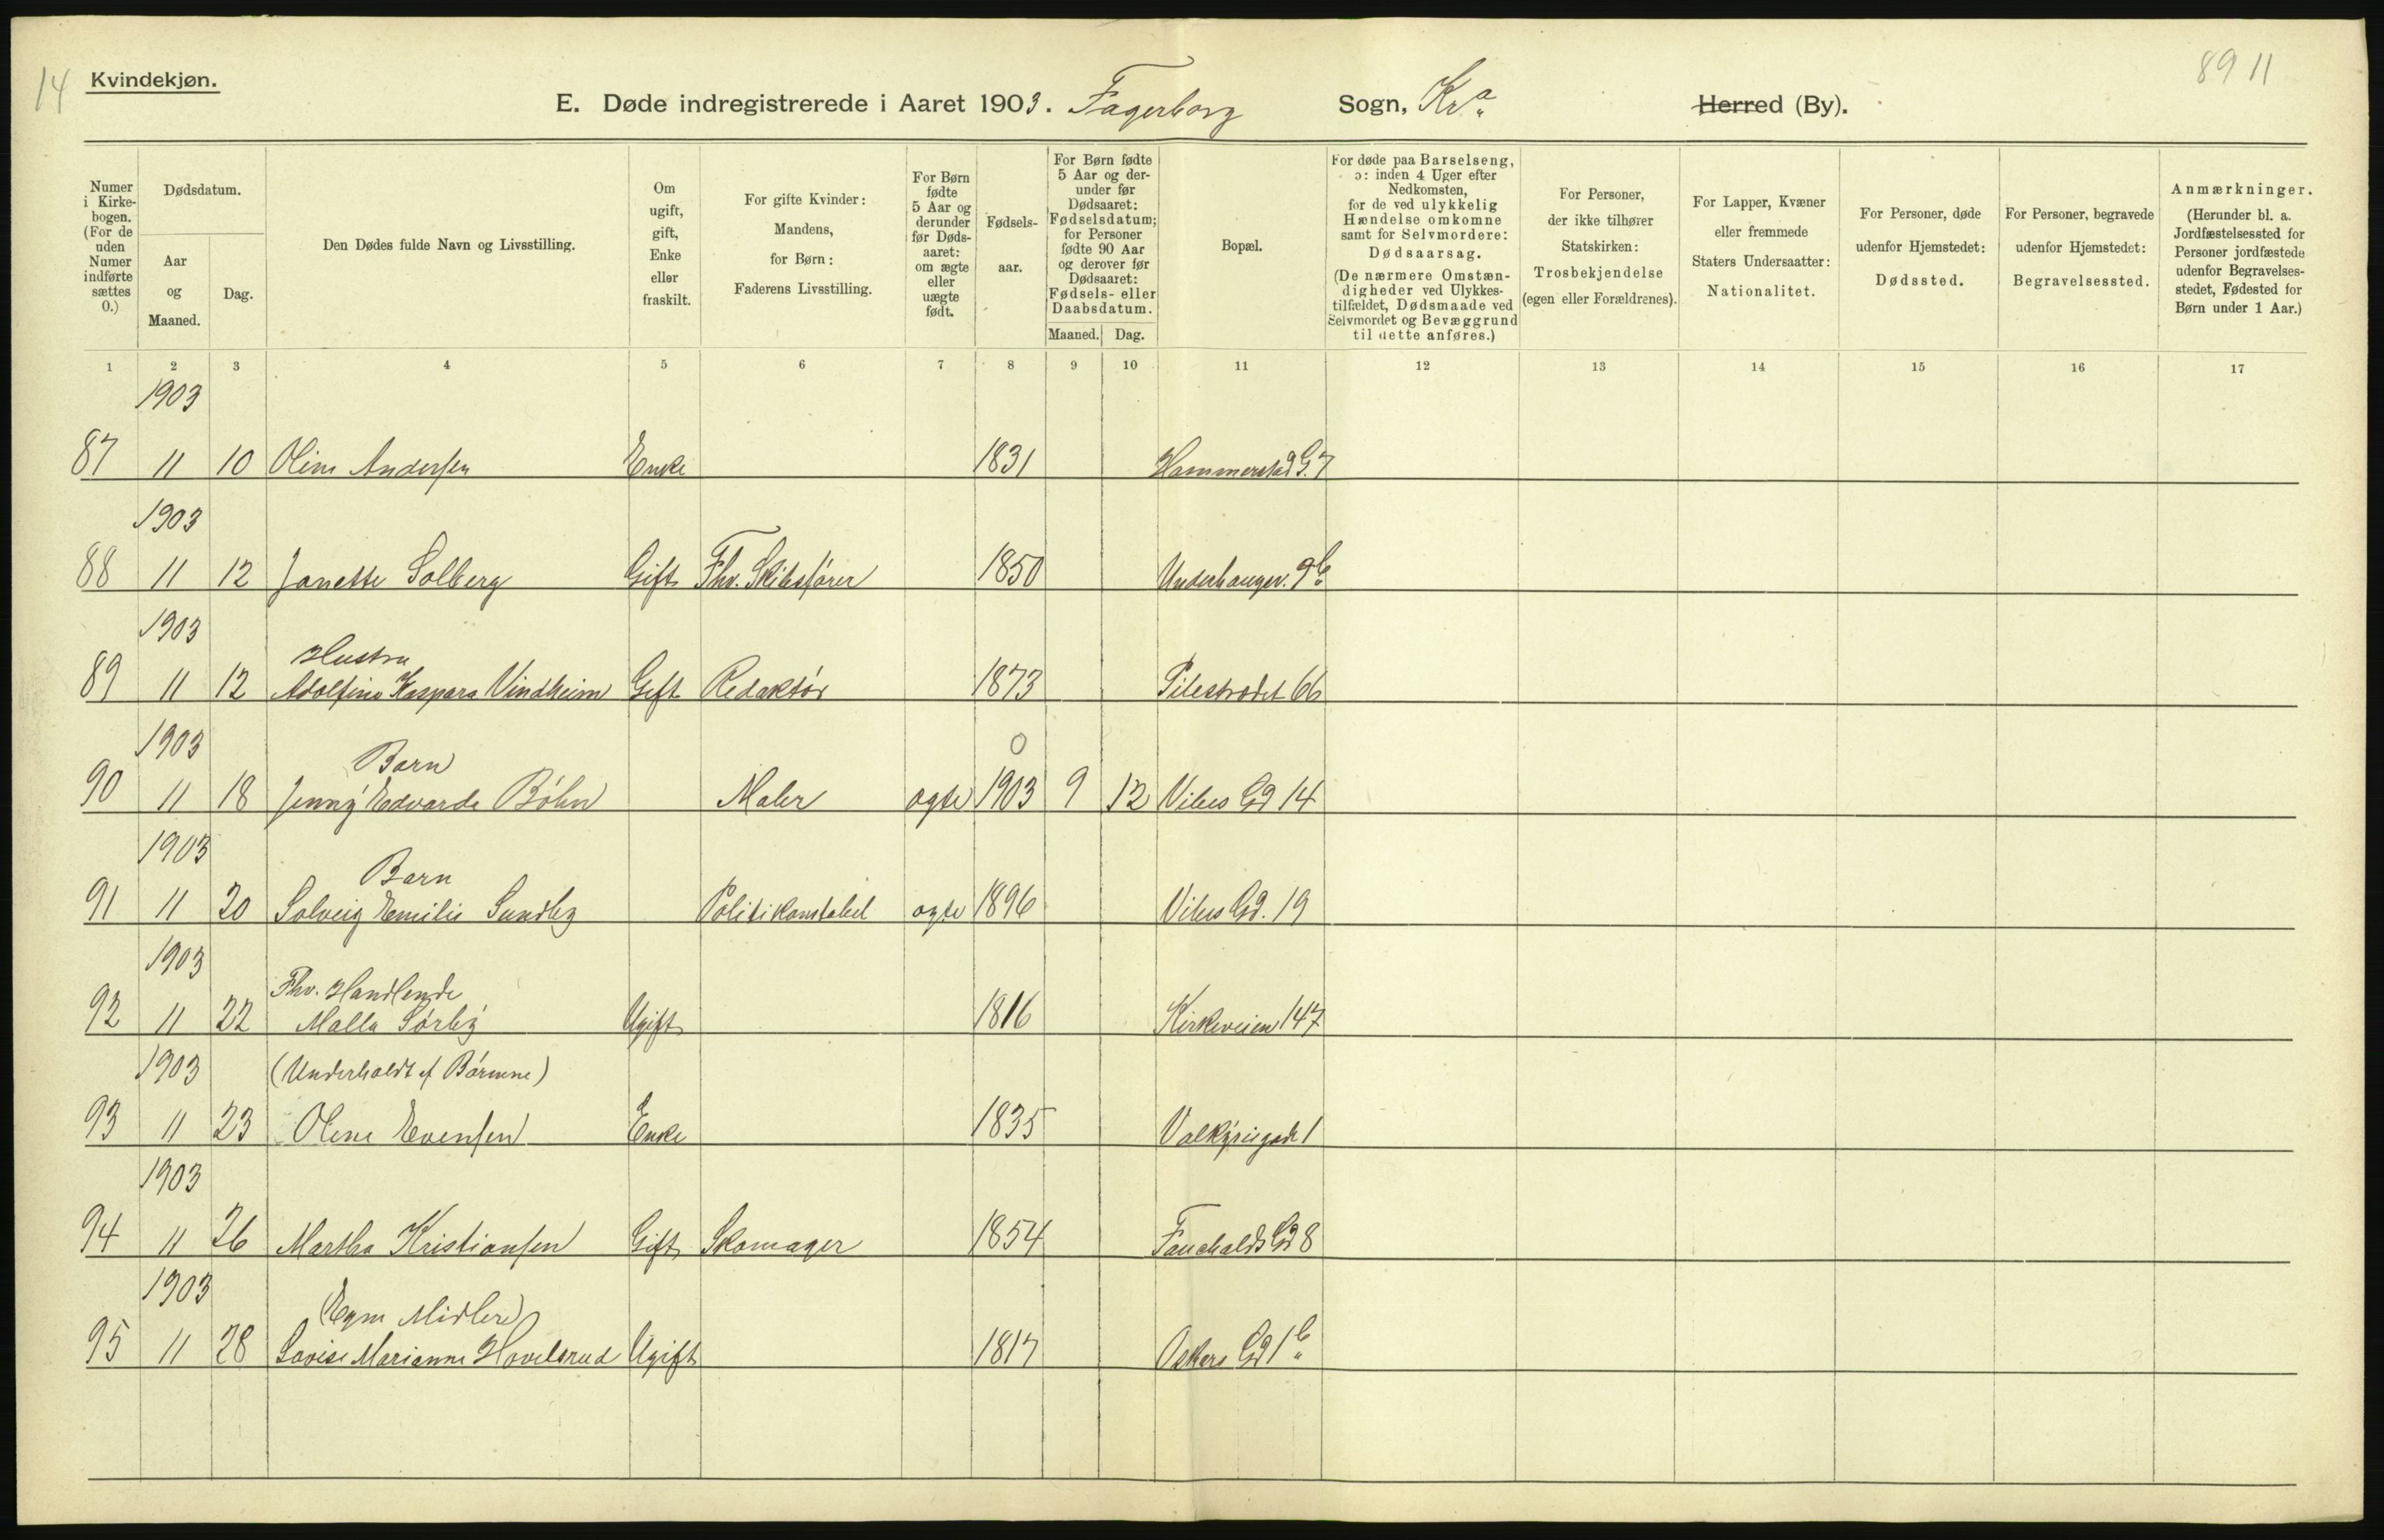 14
Kvindekjøn.
8911
E. Døde indregistrerede i Aaret 1903. Fagerborg Sogn, Kra Herred (By).
Numer i Kirkebogen. (For de uden Numer indførte sættes 0.)
Dødsdatum.
Aar og Maaned.
Dag.
Den Dødes fulde Navn og Livsstilling.
Om ugift, gift, Enke eller fraskilt.
For gifte Kvinder: Mandens, for Børn: Faderens Livsstilling.
For Børn fødte 5 Aar og derunder før Dødsaaret: om ægte eller uægte født.
Fødselsaar.
For Børn fødte 5 Aar og derunder før Dødsaaret: Fødselsdatum; for Personer fødte 90 Aar og derover før Dødsaaret: Fødsels- eller Daabsdatum.
Maaned. Dag.
Bopæl.
For døde paa Barselseng, ɔ: inden 4 Uger efter Nedkomsten, for de ved ulykkelig Hændelse omkomne samt for Selvmordere: Dødsaarsag. (De nærmere Omstændigheder ved Ulykkestilfældet, Dødsmaade ved Selvmordet og Bevæggrund til dette anføres.)
For Personer, der ikke tilhører Statskirken: Trosbekjendelse (egen eller Forældrenes).
For Lapper, Kvæner eller fremmede Staters Undersaatter: Nationalitet.
For Personer, døde udenfor Hjemstedet: Dødssted.
For Personer, begravede udenfor Hjemstedet: Begravelsessted.
Anmærkninger. (Herunder bl. a. Jordfæstelsessted for Personer jordfæstede udenfor Begravelsesstedet, Fødested for Børn under 1 Aar.)
1 2 3 4 5 6 7 8 9 10 11 12 13 14 15 16 17
1903
87 11 10 Oline Andersen Enke 1831 Hammerstad G. 7
1903
88 11 12 Janette Solberg Gift Fhv. Skibsfører 1850 Underhaugsv. 9b
1903
Hustru
89 11 12 Adolfine Kaspara Vindheim Gift Redaktør 1873 Pilestrædet 66
1903
Barn 0
90 11 18 Jenny Edvarda Böhn Maler ægte 1903 9 12 Vibes Gd 14
1903
Barn
91 11 20 Solveig Emilie Sundby Politikonstabel ægte 1896 Vibes Gd. 19
1903
Fhv. Handlende
92 11 22 Malla Sörby Ugift 1816 Kirkeveien 147
1903 (Underholdt af Børnene)
93 11 23 Olene Evensen Enke 1835 Valkyriegade 1
1903
94 11 26 Martha Kristiansen Gift Skomager 1854 Fauchalds Gd 8
1903
(Egne Midler)
95 11 28 Lovise Marianne Hovelsrud Ugift 1817 Oskars Gd 1b